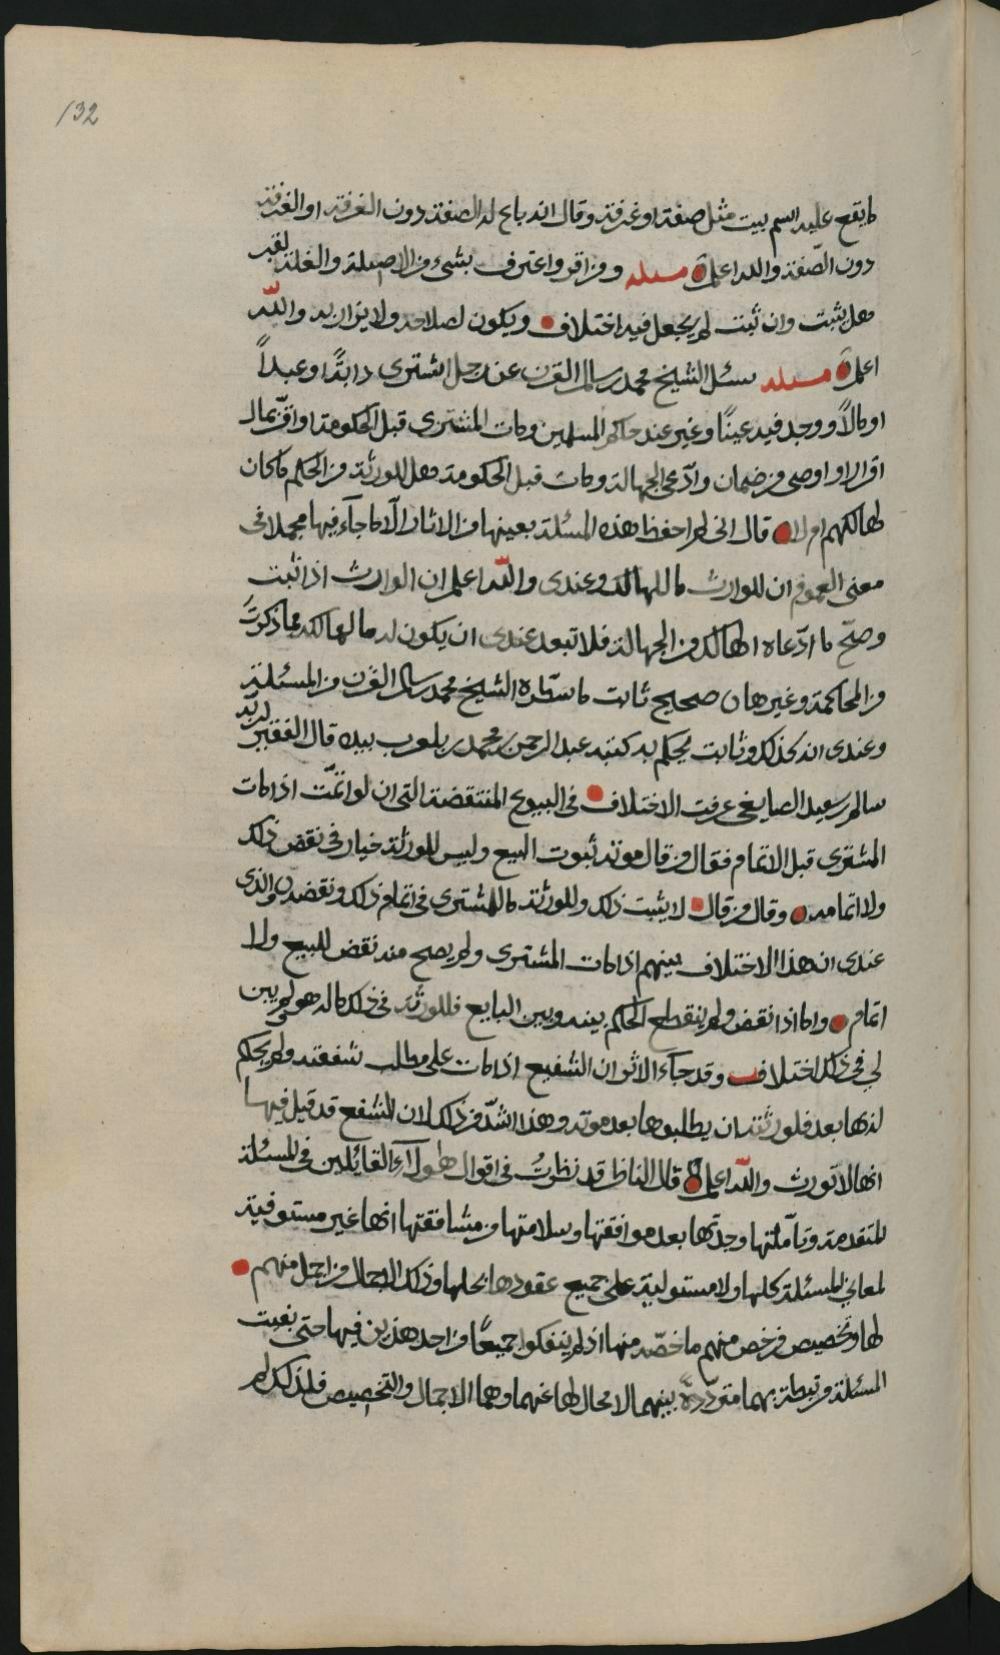 132
ما يقع عليه اسم بيت مثل صفة او غرفة وقال انه باع له الصفة دون الغرفة او الغرفة
دون الصّفة والله اعلم مسئلة ومن اقر واعترف بشيء من الاصيلة والغلة لفقير
هل يثبت وان ثبت لم يجعل فيه اختلاف ويكون لصلاحه ولا يزار به والله
اعلم مسئلة سئل الشيخ محمد بن سالم القرن عن رجل اشترى دابةً او عبداً
او مالاً ووجد فيه عيبًا وغير عند حاكم المسلمين ومات المشتري قبل الحكومة او اقرّ بمال
اقرارا او اوصى من ضمان وادّعى الجهالة ومات قبل الحكومة هل للورثة من الحكم ما كان
لهالكهم ام لا قال اني لم احفظ هذه المسئلة بعينها من الاثار الّا ما جاء فيها مجملا في
معنى العموم ان للوارث ما للهالك وعندي والله اعلم ان الوارث اذا ثبت
وصحّ ما ادّعاه الهالك من الجهالة فلا تبعد عندي ان يكون له ما لهالكه مما ذكرتَ
من المحاكمة وغيرها صحيح ثابت ما سطّره الشيخ محمد بن سالم القرن من المسئلة
وعندي انه كذلك وثابت يحكم به كتبه عبد الرحمن بن محمد بن بلعرب بيده قال الفقير لربه
سالم بن سعيد الصايغي عرفت الاختلاف في البيوع المنتقضة التي ان لو اتمّت اذا مات
المشتري قبل الاتمام فقال من قال موته ثبوت البيع وليس للورثة خيار في نقض ذلك
ولا اتمامه وقال من قال لا يثبت ذلك وللورثة ما للمشتري في اتمام ذلك ونقضه والذي
عندي ان هذا الاختلاف بينهم اذا مات المشتري ولم يصح منه نقض للبيع ولا
اتمام واما اذا نقض ولم ينقطع الحكم بينه وبين البايع فللورثة في ذلك ما له هو ولم يبن
لي في ذلك اختلاف وقد جاء الاثر ان الشفيع اذا مات على مطلب شفعته ولم يحكم
له بها بعد فلورثته ان يطلبوها بعد موته وهذا اشدّ من ذلك لان الشفع قد قيل فيها
انها لا تورث والله اعلم قال الناظر قد نظرتُ في اقوال هؤلآء القائلين في المسئلة
المتقدمة وتأملتها وجدتها بعد موافقتها وسلامتها من مشاققتها انها غير مستوفية
لمعاني المسئلة كلها ولا مستولية على جميع عقودها بحلها وذلك الاجمال من اجمل منهم
لها وتخصيص من خص منهم ما خصّه منها اذ لم ينفكوا جميعًا من احد هذين فيها حتى بقيت
المسئلة مرتبطة بهما مترددةً بينهما لا محال لها عنهما وهما الاجمال والتخصيص فلذلك لم